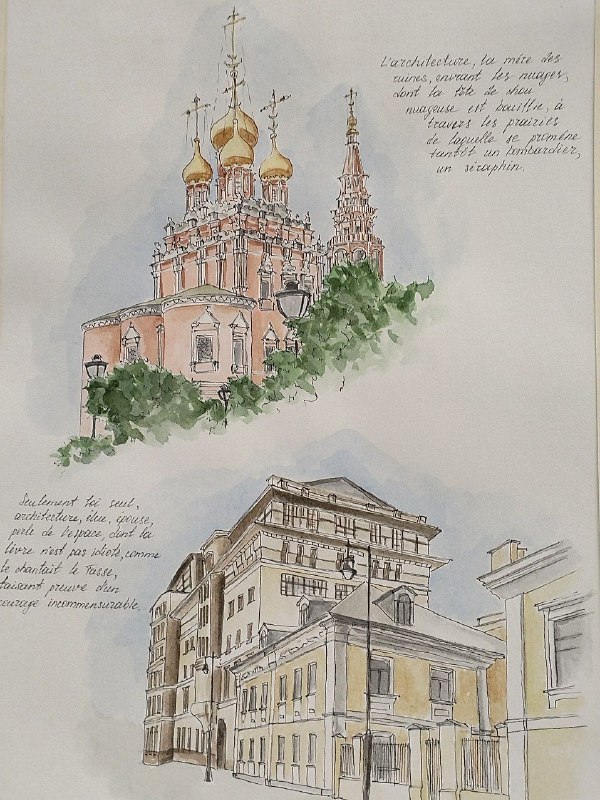 L'architecture, la mère des
ruines, enviant les nuages,
dont la tête de chou
nuageuse est bouffie, à
travers les prairies
de laquelle se promène
tantôt un bombardier,
un séraphin.
Seulement toi seul,
architecture, élue, épouse,
perle de l'espace dont la
lèvre n'est pas idiote, comme
le chantait le Tasse,
faisant preuve d'un
courage incommensurable.